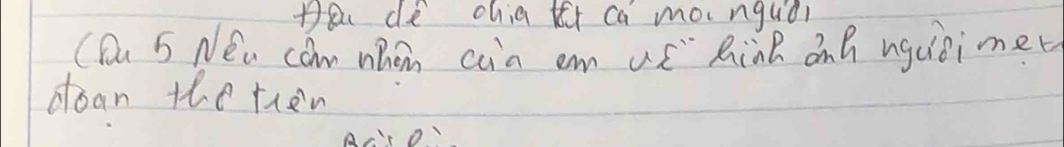 để chia tất cả mọi người
Câu 5 Nêu cảm nhận của em về hình ảnh người mẹ
đoạn thơ trên
Bài